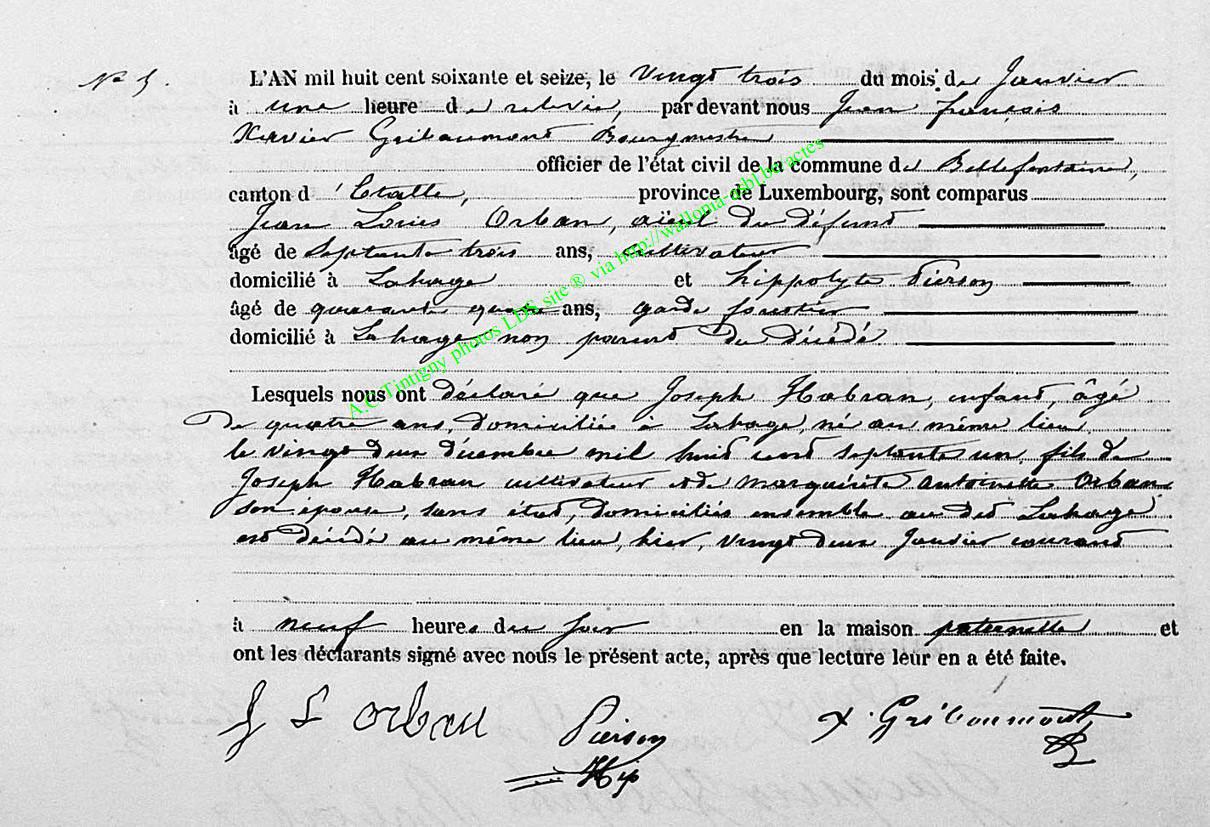 N° 5.
L'AN mil huit cent soixante et seize, le vingt trois du mois de Janvier
à une heure de relevée, par devant nous Jean françois
Xavier Gribaumont Bourgmestre
officier de l'état civil de la commune de Bellefontaine,
canton d'Etalle, province de Luxembourg, sont comparus
Jean Louis Orban, aïeul du défunt
âgé de septante trois ans, cultivateur
domicilié à Lahage et hippolyte Pierson
âgé de quarante quatre ans, garde forestier
domicilié à Lahage non parent du décédé
Lesquels nous ont déclaré que Joseph Habran, enfant, âgé
de quatre ans, domicilié à Lahage, né au même lieu
le vingt deux décembre mil huit cent septante un, fils de
Joseph Habran cultivateur et de Marguerite Antoinette Orban
son épouse, sans état, domiciliés ensemble au dit Lahage
est décédé au même lieu, hier, vingt deux Janvier courant
à neuf heures du soir en la maison paternelle et
ont les déclarants signé avec nous le présent acte, après que lecture leur en a été faite.
J L Orban Pierson X. Gribaumont
Hip
A.C Tintigny photos LDS site ® via http://wallonia-asbl.be/actes